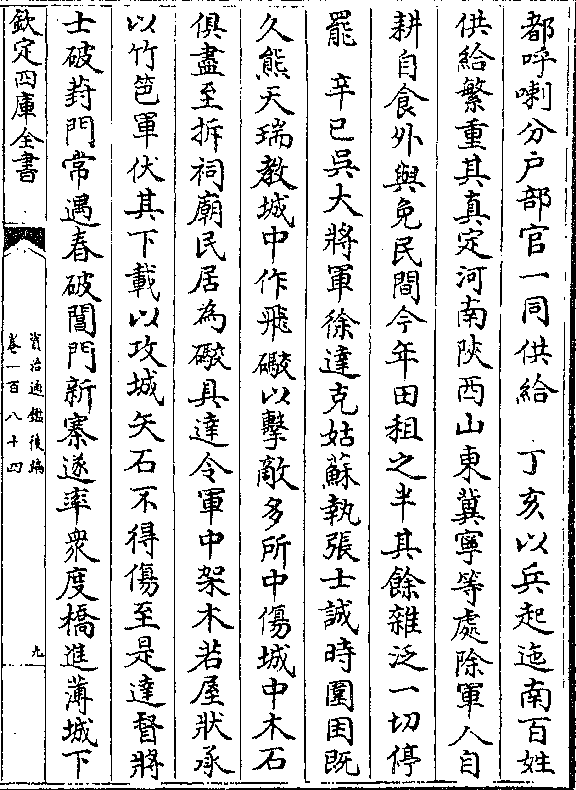 都呼喇分户部官一同供給　丁亥以兵起迤南百姓
供給繁重其真定河南陜西山東冀寧等處除軍人自
耕自食外與免民間今年田租之半其餘雜泛一切停
罷　辛巳吳大將軍徐達克姑蘇執張士誠時圍困既
久熊天瑞教城中作飛礮以擊敵多所中傷城中木石
俱盡至拆祠廟民居為礮具達令軍中架木若屋狀承
以竹笆軍伏其下載以攻城矢石不得傷至是達督將
士破葑門常遇春破閶門新寨遂率衆度橋進薄城下
欽定四庫全書
資治通鑑後編
卷一百八十四
九